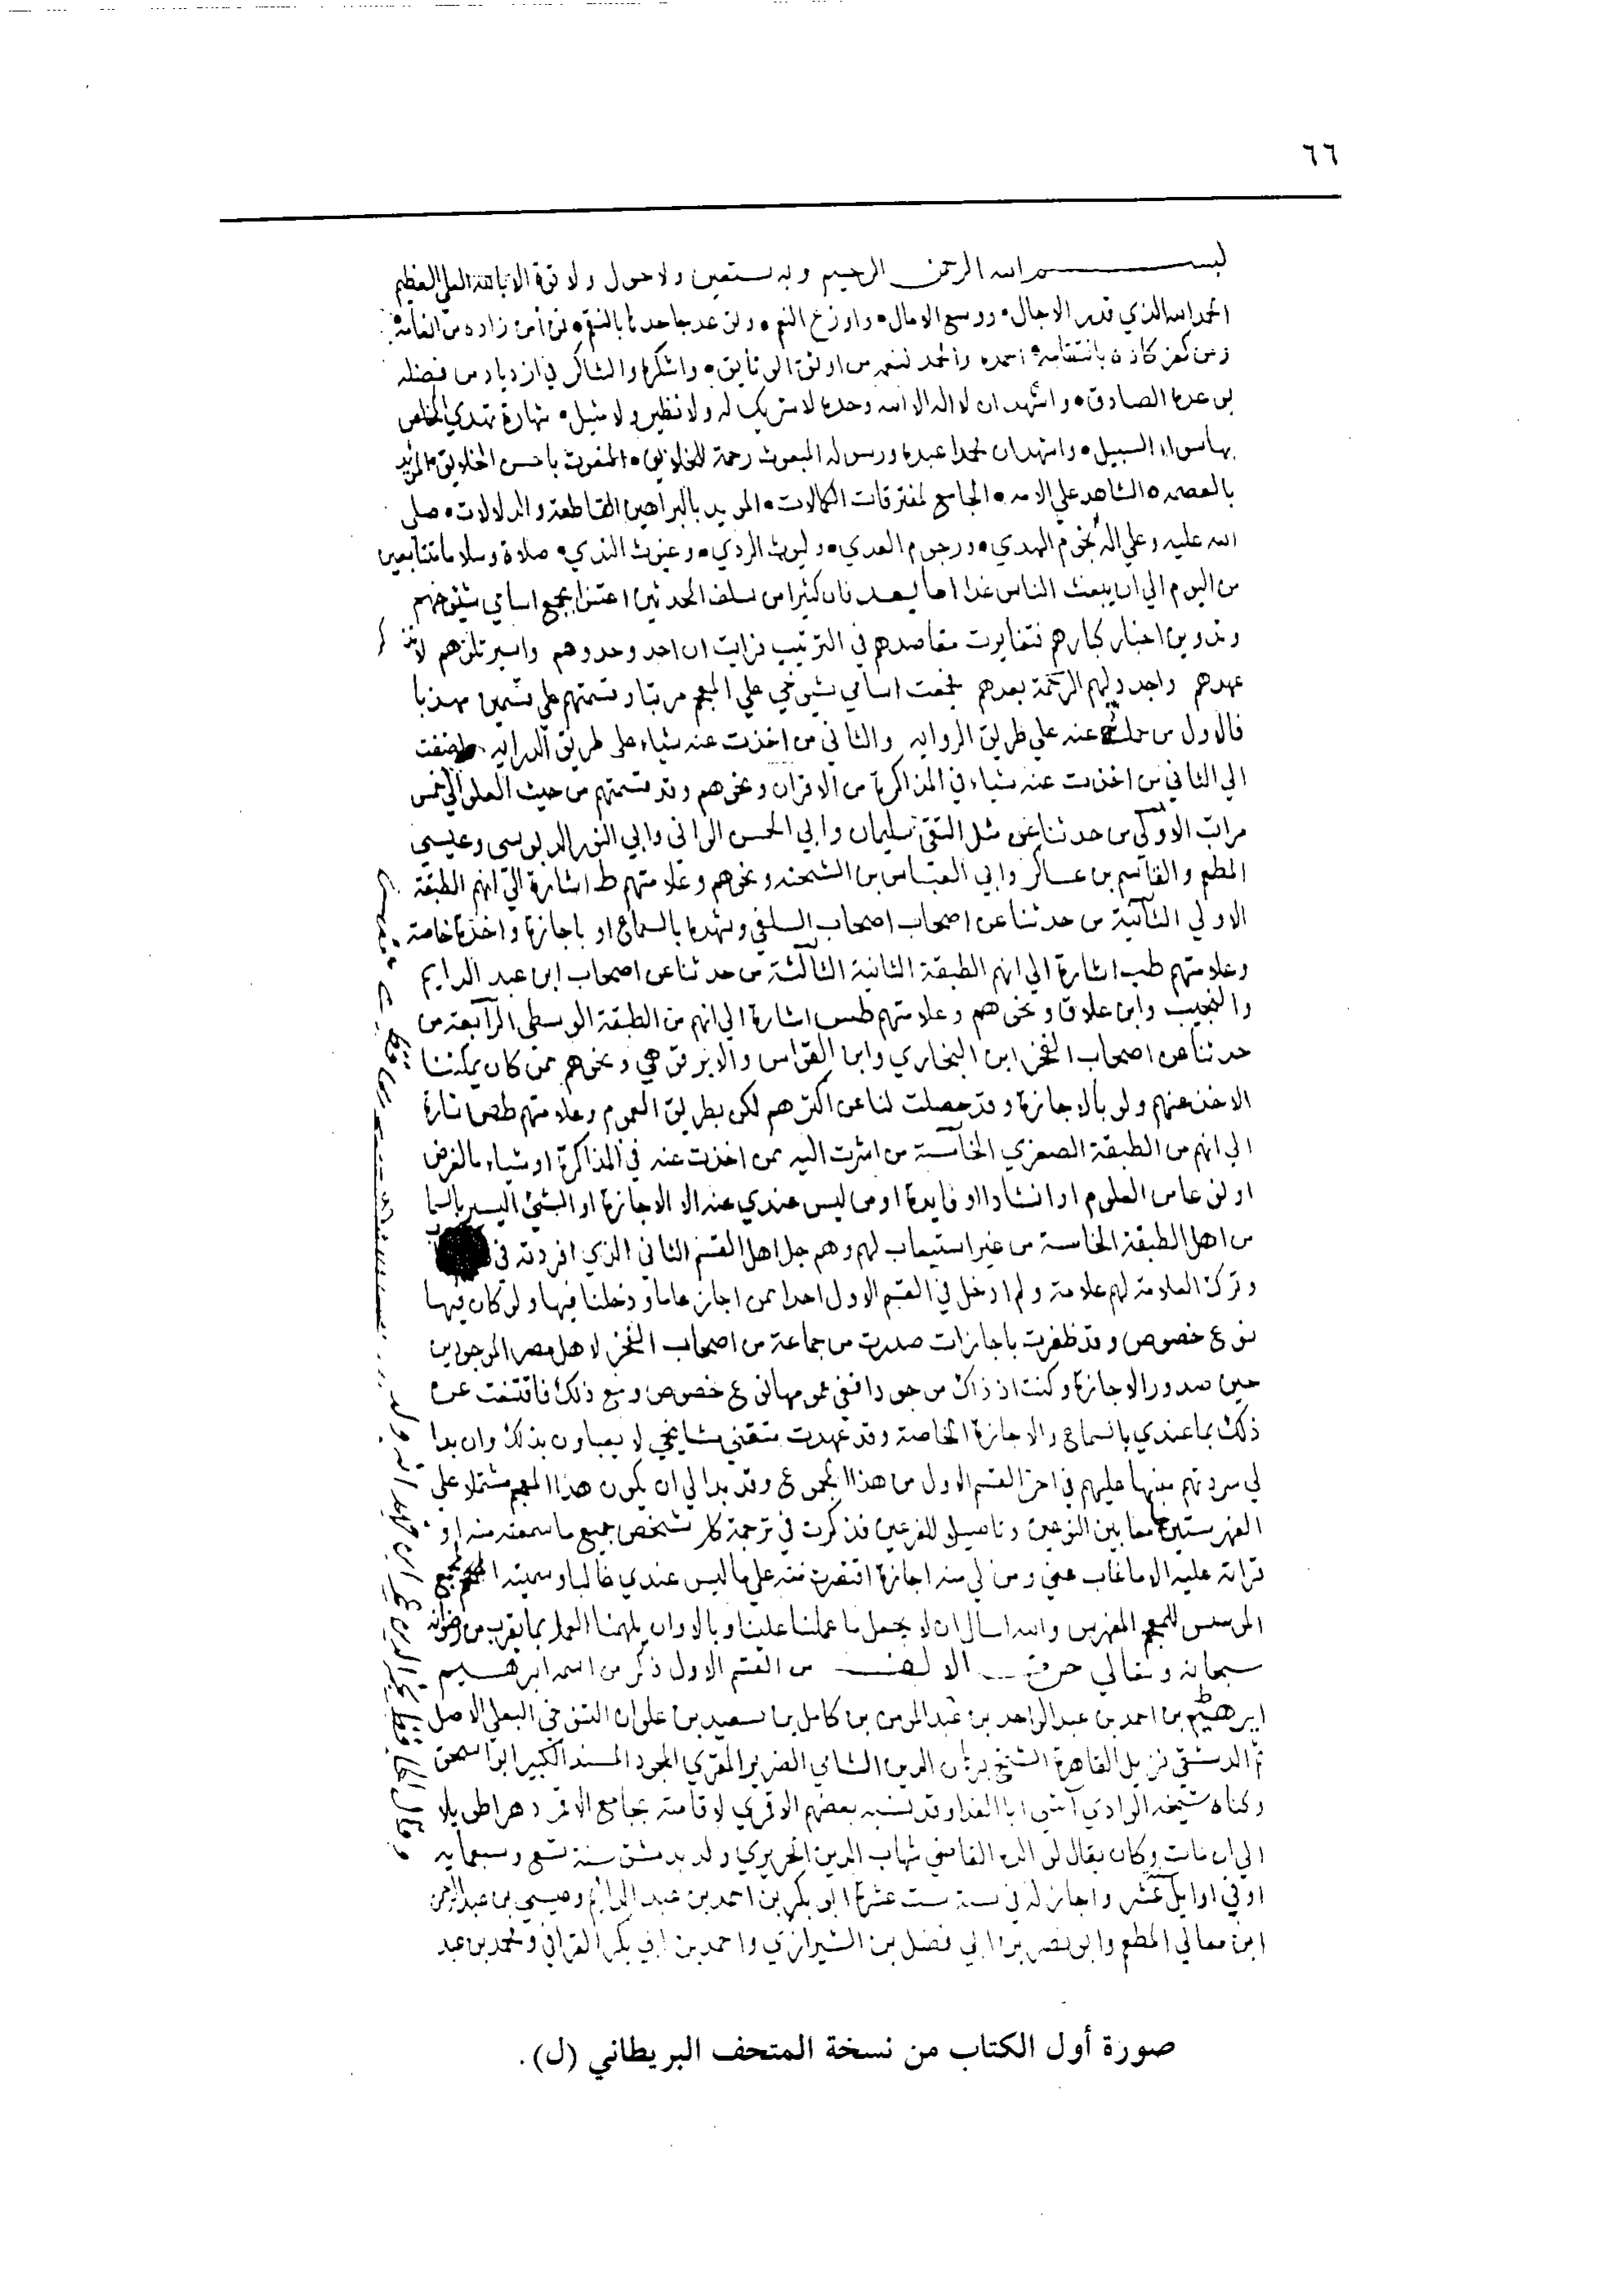 ٦٦
بسم الله الرحمن الرحيم وبه نستعين ولا حول ولا قوة الا بالله العلي العظيم
الحمد لله الذي قدر الاجال ووسع الامال واوزع النعم وتوعد جاحدها بالنقم فمن آمن زاده من انعامه
ومن كفر كاده بانتقامه احمده والحمد لنعمه من اوثق الوثايق واشكره والشاكر في ازدياد من فضله
بوعده الصادق واشهد ان لا اله الا الله وحده لا شريك له ولا نظير ولا مثيل شهادة تهدي المخلص
بها سواء السبيل واشهد ان محمدا عبده ورسوله المبعوث رحمة للخلايق المنعوت باحسن الخلايق المؤيد
بالعصمه الشاهد علي الامه الجامع لمفترقات الكمالات المويد بالبراهين القاطعة والدلالات صلى
الله عليه وعلي اله نجوم الهدي ورجوم العدي وليوث الردي وغيوث الندي صلاة وسلاما متتابعين
من اليوم الي ان يبعث الناس غدا اما بعد فان كثيرا من سلف المحدثين اعتنوا بجمع اسامي شيوخهم
وتدوين اخبار كبارهم فتغايرت مقاصدهم في الترتيب فرايت ان احذو حذوهم واسير تلوهم لاتذكر
عهدهم واجدد لهم الرحمة بعدهم فجمعت اسامي شيوخي علي المعجم مرتبا وقسمتهم علي قسمين مهذبا
فالاول من حملت عنه علي طريق الروايه والثاني من اخذت عنه شياء على طريق الدرايه واضفت
الي الثاني من اخذت عنه شياء في المذاكرة من الاقران ونحوهم وقد قسمتهم من حيث العلو الي خمس
مراتب الاولى من حدثنا عن مثل التقي سليمان وابي الحسن الواني وابي النون الدبوسى وعيسى
المطعم والقاسم بن عساكر وابي العباس بن الشحنه ونحوهم وعلامتهم ط اشارة الي انهم الطبقة
الاولي الثانية من حدثنا عن اصحاب اصحاب السلفي وشهده بالسماع او باجازة واخذه خاصة
وعلامتهم طب اشارة الي انهم الطبقة الثانية الثالثة من حدثنا عن اصحاب ابن عبد الدايم
والنجيب وابن علاق ونحوهم وعلامتهم طس اشارة الي انهم من الطبقة الوسطى الرابعة من
حدثنا عن اصحاب الفخر ابن البخاري وابن القواس والابرقوهي ونحوهم ممن كان يمكننا
الاخذ عنهم ولو بالاجازة وقد حصلت لنا عن اكثرهم لكن بطريق العموم وعلامتهم طص اشارة
الي انهم من الطبقة الصغري الخامسة من اشرت اليه ممن اخذت عنه في المذاكرة او شياء بالعرض
او نوعا من العلوم او انشادا او فايدة او من ليس عندي عنه الا الاجازة او الشيء اليسير بالسما
من اهل الطبقة الخامسة من غير استيعاب لهم وهم جل اهل القسم الثاني الذي افردته في
وترك العلامة لهم علامة ولم ادخل في القسم الاول احدا ممن اجاز عاما ودخلنا فيها ولو كان فيها
نوع خصوص وقد ظفرت باجازات صدرت من جماعة من اصحاب الفخر لاهل مصر الموجودين
حين صدور الاجازة وكنت اذ ذاك موجودا ففي عمومها نوع خصوص ومع ذلك فاقتنعت عن
ذلك بما عندي بالسماع والاجازة الخاصة وقد عهدت متقني مشايخي لا يعباون بذلك وان بدا
لي سردتهم منبها عليهم في اخر القسم الاول من هذا المجموع وقد بدا لي ان يكون هذا المعجم مشتملا علي
الفهرستين جامعا بين النوعين وتاصيل للفرعين فذكرت في ترجمة كل شخص جميع ما سمعته منه او
قراته عليه الا ما غاب عني ومن لي منه اجازة اقتصرت منه علي ما ليس عندي غالبا وسميته المجمع
الموسس للمعجم المفهرس والله اسال ان لا يجعل ما عملنا علينا وبالا وان يلهمنا العمل بما يقرب من رضوانه
سبحانه وتعالي حرف الالف من القسم الاول ذكر من اسمه ابرهيم
ابرهيم بن احمد بن عبد الواحد بن عبد المومن بن كامل بن سعيد بن علوان التنوخي البعلي الاصل
ثم الدمشقي نزيل القاهرة الشيخ برهان الدين الشامي الضرير المقري المجود المسند الكبير ابو اسحق
وكناه شيخه الوادي آشي ابا الفدا وقد نسبه بعضهم الاقمري لاقامته بجامع الاقمر دهرا طويلا
الي ان مات وكان يقال لوالده القاضي شهاب الدين الحريري ولد بدمشق سنة تسع وسبعمايه
او في اوايل عشر واجاز له في سنة ست عشرة ابو بكر بن احمد بن عبد الدايم وعيسي بن عبد الرحمن
ابن معالي المطعم وابو نصر بن ابي فضل بن الشيرازي واحمد بن ابي بكر القرافي ومحمد بن عبد
صورة أول الكتاب من نسخة المتحف البريطاني (ل).